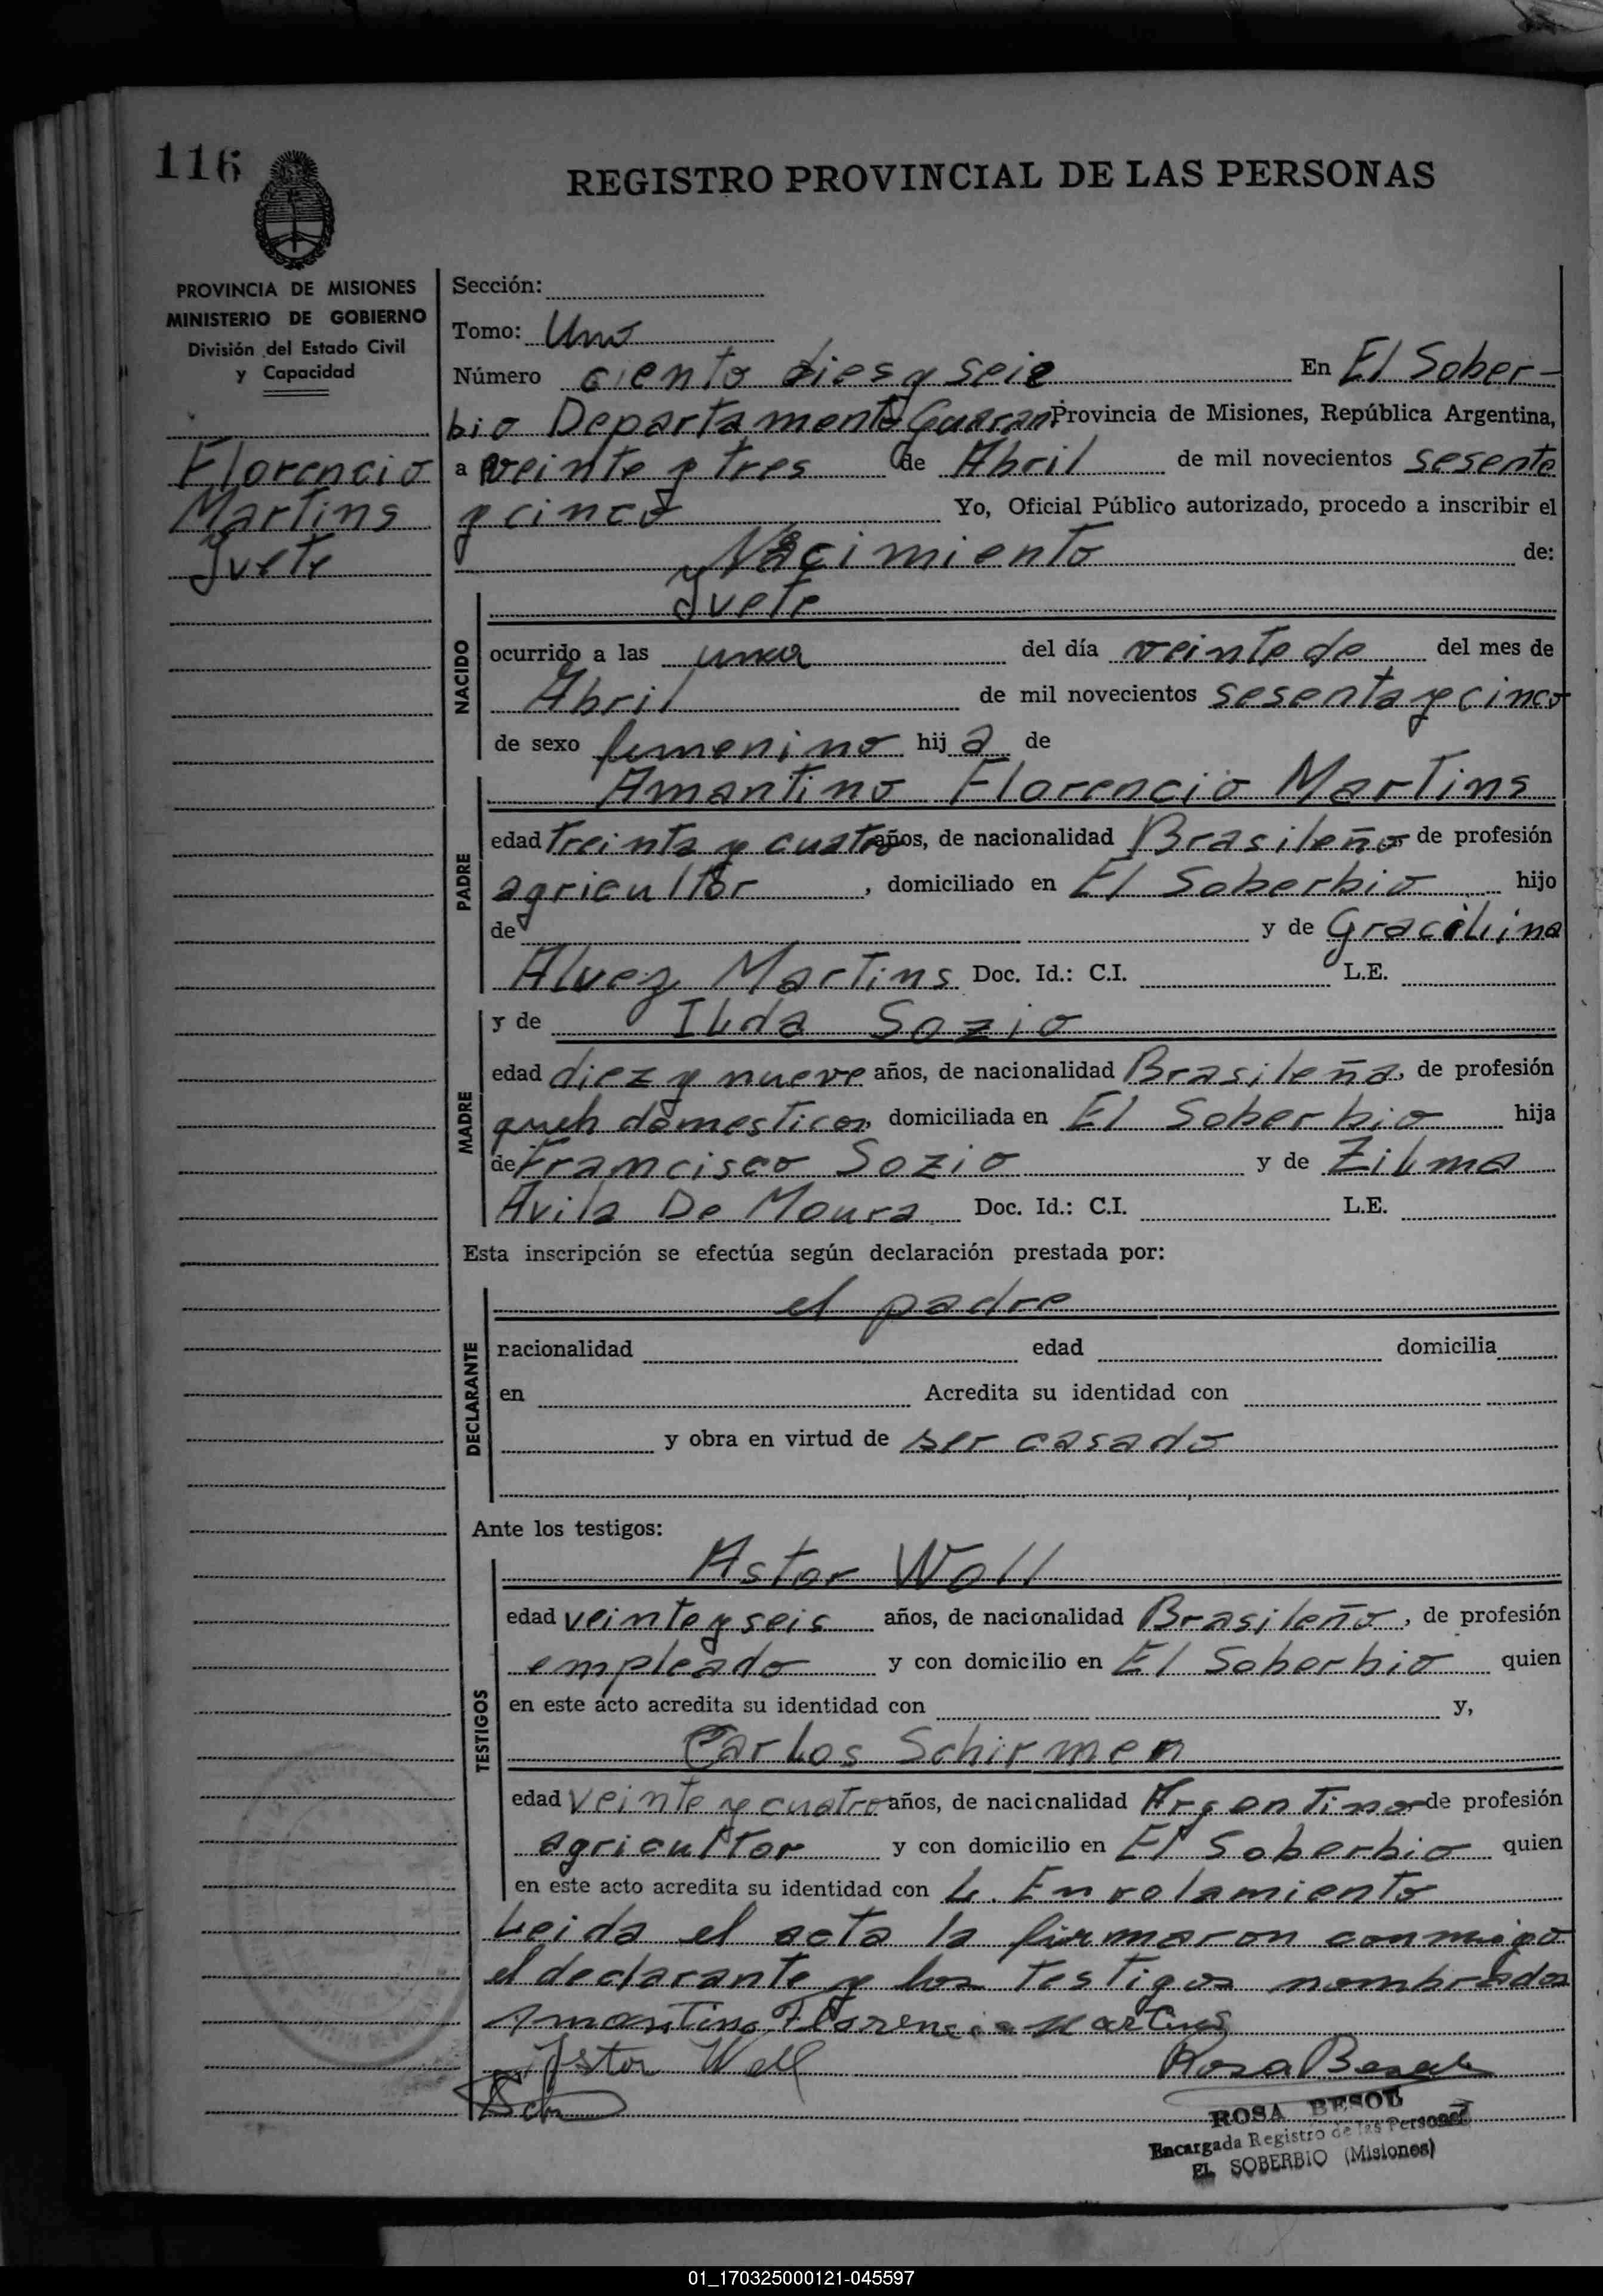 116
REGISTRO PROVINCIAL DE LAS PERSONAS
PROVINCIA DE MISIONES
MINISTERIO DE GOBIERNO
División del Estado Civil
y Capacidad
Florencio
Martins
Yvete
Sección:
Tomo: Uno
Número ciento dies y seis En El Sober-
bio Departamento Guarani Provincia de Misiones, República Argentina,
a veinte y tres de Abril de mil novecientos sesenta
y cinco Yo, Oficial Público autorizado, procedo a inscribir el
Nacimiento de:
Yvete
NACIDO
ocurrido a las una del día veinte de del mes de
Abril de mil novecientos sesenta y cinco
de sexo femenino hija de
Amantino Florencio Martins
PADRE
edad treinta y cuatro años, de nacionalidad Brasileño de profesión
agricultor, domiciliado en El Soberbio hijo
de y de Gracilina
Alvez Martins Doc. Id.: C.I. L.E.
y de Ilda Sozio
MADRE
edad diez y nueve años, de nacionalidad Brasileña, de profesión
queh domesticos, domiciliada en El Soberbio hija
de Francisco Sozio y de Zilma
Avila De Moura Doc. Id.: C.I. L.E.
Esta inscripción se efectúa según declaración prestada por:
el padre
DECLARANTE
nacionalidad edad domicilia
en Acredita su identidad con
y obra en virtud de ser casado
Ante los testigos:
Astor Woll
TESTIGOS
edad veinte y seis años, de nacionalidad Brasileño, de profesión
empleado y con domicilio en El Soberbio quien
en este acto acredita su identidad con y,
Carlos Schirmen
edad veinte y cuatro años, de nacionalidad Argentino de profesión
agricultor y con domicilio en El Soberbio quien
en este acto acredita su identidad con L. Enrolamiento
Leida el acta la firmaron conmigo
el declarante y los testigos nombrados
Amantino Florencio Martins
Astor Woll Rosa Besol
ROSA BESOL
Encargada Registro de las Personas
EL SOBERBIO (Misiones)
01_170325000121-045597